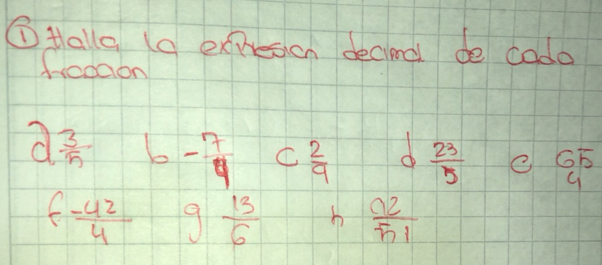 ① Halla la expresion decimal de cada
fraccion
a 3/5 b -7/4 c 2/9 d 23/5 e 65/4
f -42/4 g 13/6 h 92/51